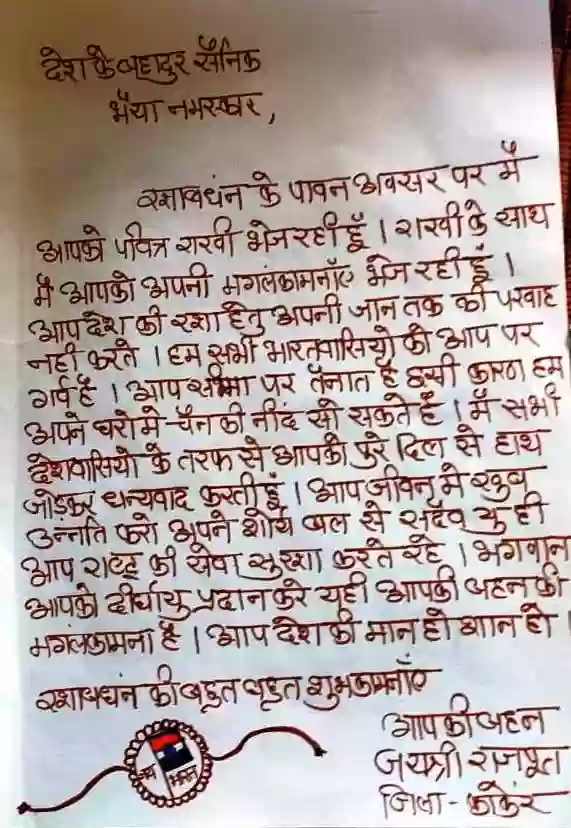 देश के बहादुर सैनिक
भैया नमस्कार,
रक्षाबधंन के पावन अवसर पर मैं
आपको पवित्र राखी भेज रही हूँ । राखी के साथ
मैं आपको अपनी मगंलकामनाएँ भेज रही हूँ ।
आप देश की रक्षा हेतु अपनी जान तक की परवाह
नही करते । हम सभी भारतवासियो को आप पर
गर्व है । आप सीमा पर तैनात है इसी कारण हम
अपने घरो मे चैन की नींद सो सकते हैं । मैं सभी
देशवासियो के तरफ से आपको पुरे दिल से हाथ
जोड़कर धन्यवाद करती हूं । आप जीवन मे खुब
उन्नति करो अपने शौर्य बल से सदैव यु ही
आप राष्ट्र की सेवा सुरक्षा करते रहे । भगवान
आपको दीर्घायु प्रदान करे यही आपकी बहन की
मगंलकामना है । आप देश की मान हो शान हो ।
रक्षाबधंन की बहुत बहुत शुभकामनाएँ
आपकी बहन
जयश्री राजपूत
जिला - कांकेर
जय भारत